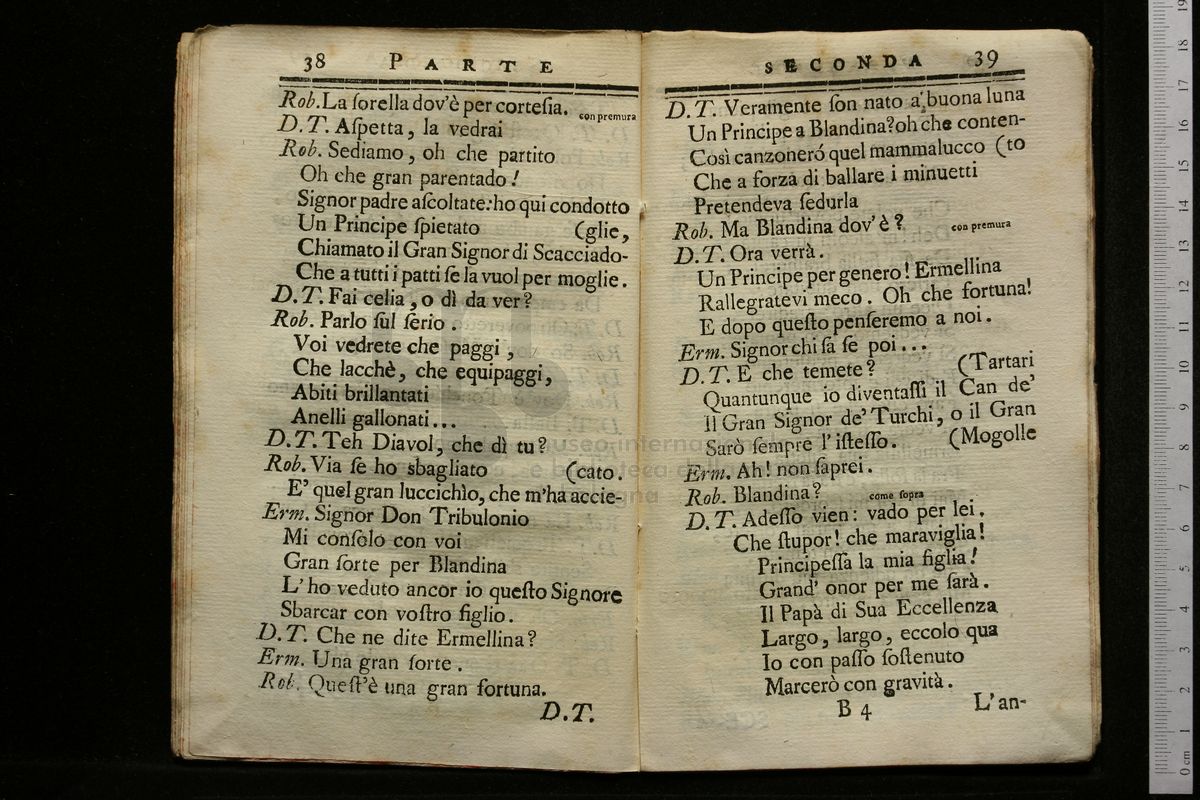 38 PARTE
Rob. La ſorella dov'è per corteſia. con premura
D.T. Aſpetta, la vedrai
Rob. Sediamo, oh che partito
Oh che gran parentado!
Signor padre aſcoltate: ho qui condotto
Un Principe ſpietato (glie,
Chiamato il Gran Signor di Scacciado-
Che a tutti i patti ſe la vuol per moglie.
D.T. Fai celia, o dì da ver?
Rob. Parlo ſul ſerio.
Voi vedrete che paggi,
Che lacchè, che equipaggi,
Abiti brillantati
Anelli gallonati...
D.T. Teh Diavol, che dì tu?
Rob. Via ſe ho sbagliato (cato.
E' quel gran luccichìo, che m'ha accie-
Erm. Signor Don Tribulonio
Mi conſolo con voi
Gran ſorte per Blandina
L'ho veduto ancor io queſto Signore
Sbarcar con voſtro figlio.
D.T. Che ne dite Ermellina?
Erm. Una gran ſorte.
Rob. Queſt'è una gran fortuna.
D.T.
SECONDA 39
D.T. Veramente ſon nato a buona luna
Un Principe a Blandina? oh che conten-
Così canzoneró quel mammalucco (to
Che a forza di ballare i minuetti
Pretendeva ſedurla
Rob. Ma Blandina dov'è? con premura
D.T. Ora verrà.
Un Principe per genero! Ermellina
Rallegratevi meco. Oh che fortuna!
E dopo queſto penſeremo a noi.
Erm. Signor chi ſa ſe poi...
D.T. E che temete? (Tartari
Quantunque io diventaſſi il Can de'
Il Gran Signor de' Turchi, o il Gran
Sarò ſempre l'iſteſſo. (Mogolle
Erm. Ah! non ſaprei.
Rob. Blandina? come ſopra
D.T. Adeſſo vien: vado per lei.
Che ſtupor! che maraviglia!
Principeſſa la mia figlia!
Grand' onor per me ſarà.
Il Papà di Sua Eccellenza
Largo, largo, eccolo qua
Io con paſſo ſoſtenuto
Marcerò con gravità.
B 4 L'an-